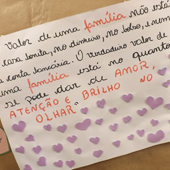 Valor de uma família não está
casa bonita, no dinheiro, no luxo, e nem
conta bancária. O verdadeiro valor de
uma família está no quanto
se pode dar de AMOR,
ATENÇÃO E BRILHO NO
OLHAR"